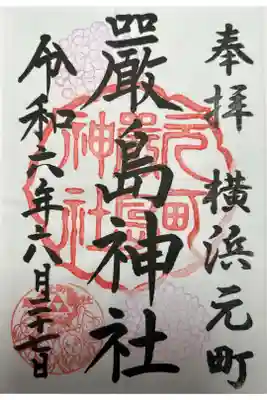 奉拝 横浜元町
嚴島神社
令和六年六月二十七日
元町
嚴島
神社